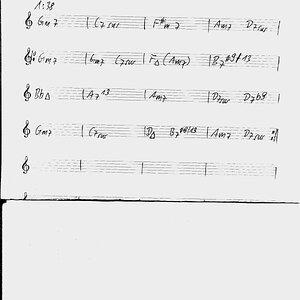 1:38
Gm7 | C7sus | F#m7 | Am7 D7sus
Gm7 | Gm7 C7sus | F△ (Am7) | B7#9/13
Bb△ | A7 13 | Am7 | D7sus D7b9
Gm7 | C7sus | D△ B7#9/13 | Am7 D7sus